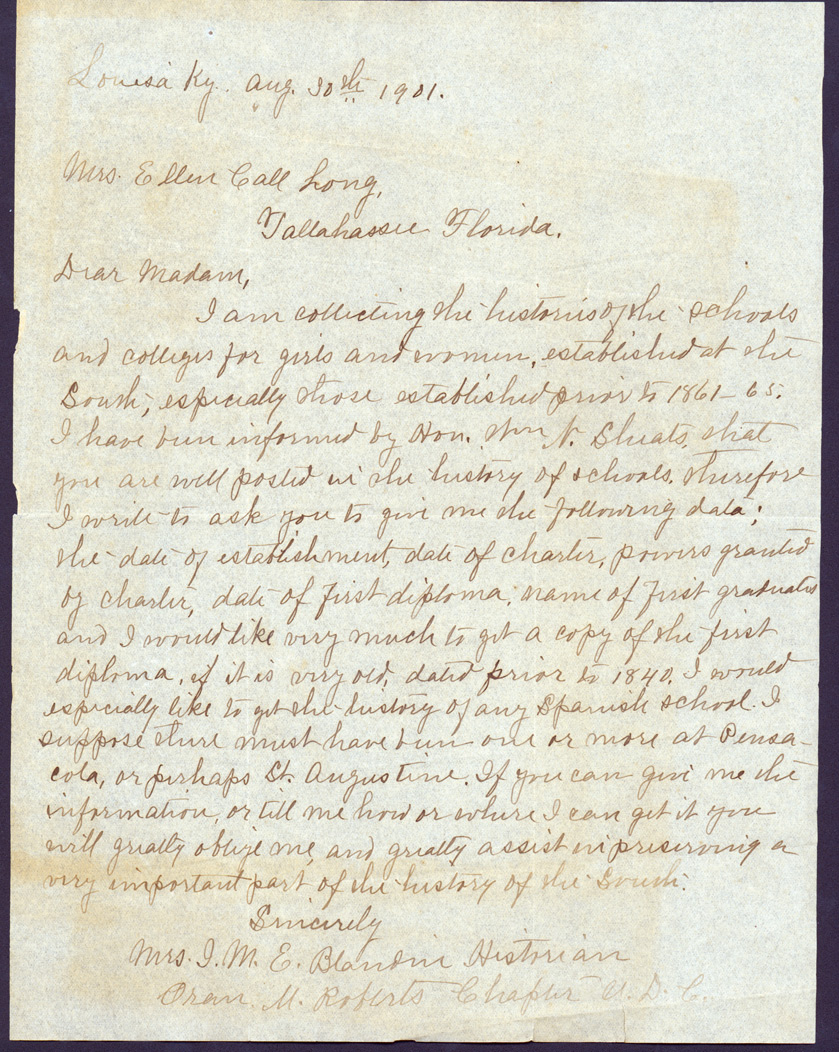 Louisa Ky. Aug. 30th 1901.
Mrs. Ellen Call Long,
Tallahassee Florida.
Dear Madam,
I am collecting the histories of the schools
and colleges for girls and women, established at the
South, especially those established prior to 1861-65.
I have been informed by Hon. Wm N. Sheats, that
you are well posted in the history of schools. therefore
I write to ask you to give me the following data;
the date of establishment, date of charter, powers granted
by charter, date of first diploma, name of first graduates
and I would like very much to get a copy of the first
diploma, if it is very old, dated prior to 1840. I would
especially like to get the history of any Spanish school. I
suppose there must have been one or more at Pensa-
cola, or perhaps St. Augustine. If you can give me the
information, or tell me how or where I can get it you
will greatly oblige me, and greatly assist in preserving a
very important part of the history of the South.
Sincerely
Mrs. I. M. E. Blandin Historian
Oran M. Roberts Chapter U. D. C.